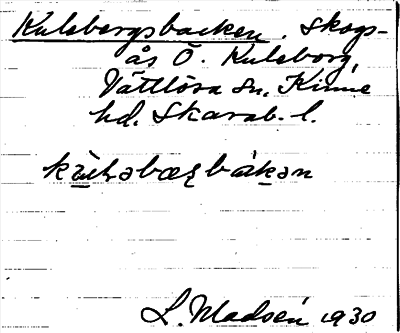 Kulebergsbacken. Skogs-
ås Ö. Kuleborg,
Vättlösa sn. Kinne
hd. Skarab. l.
båkan
L. Madsén 1930